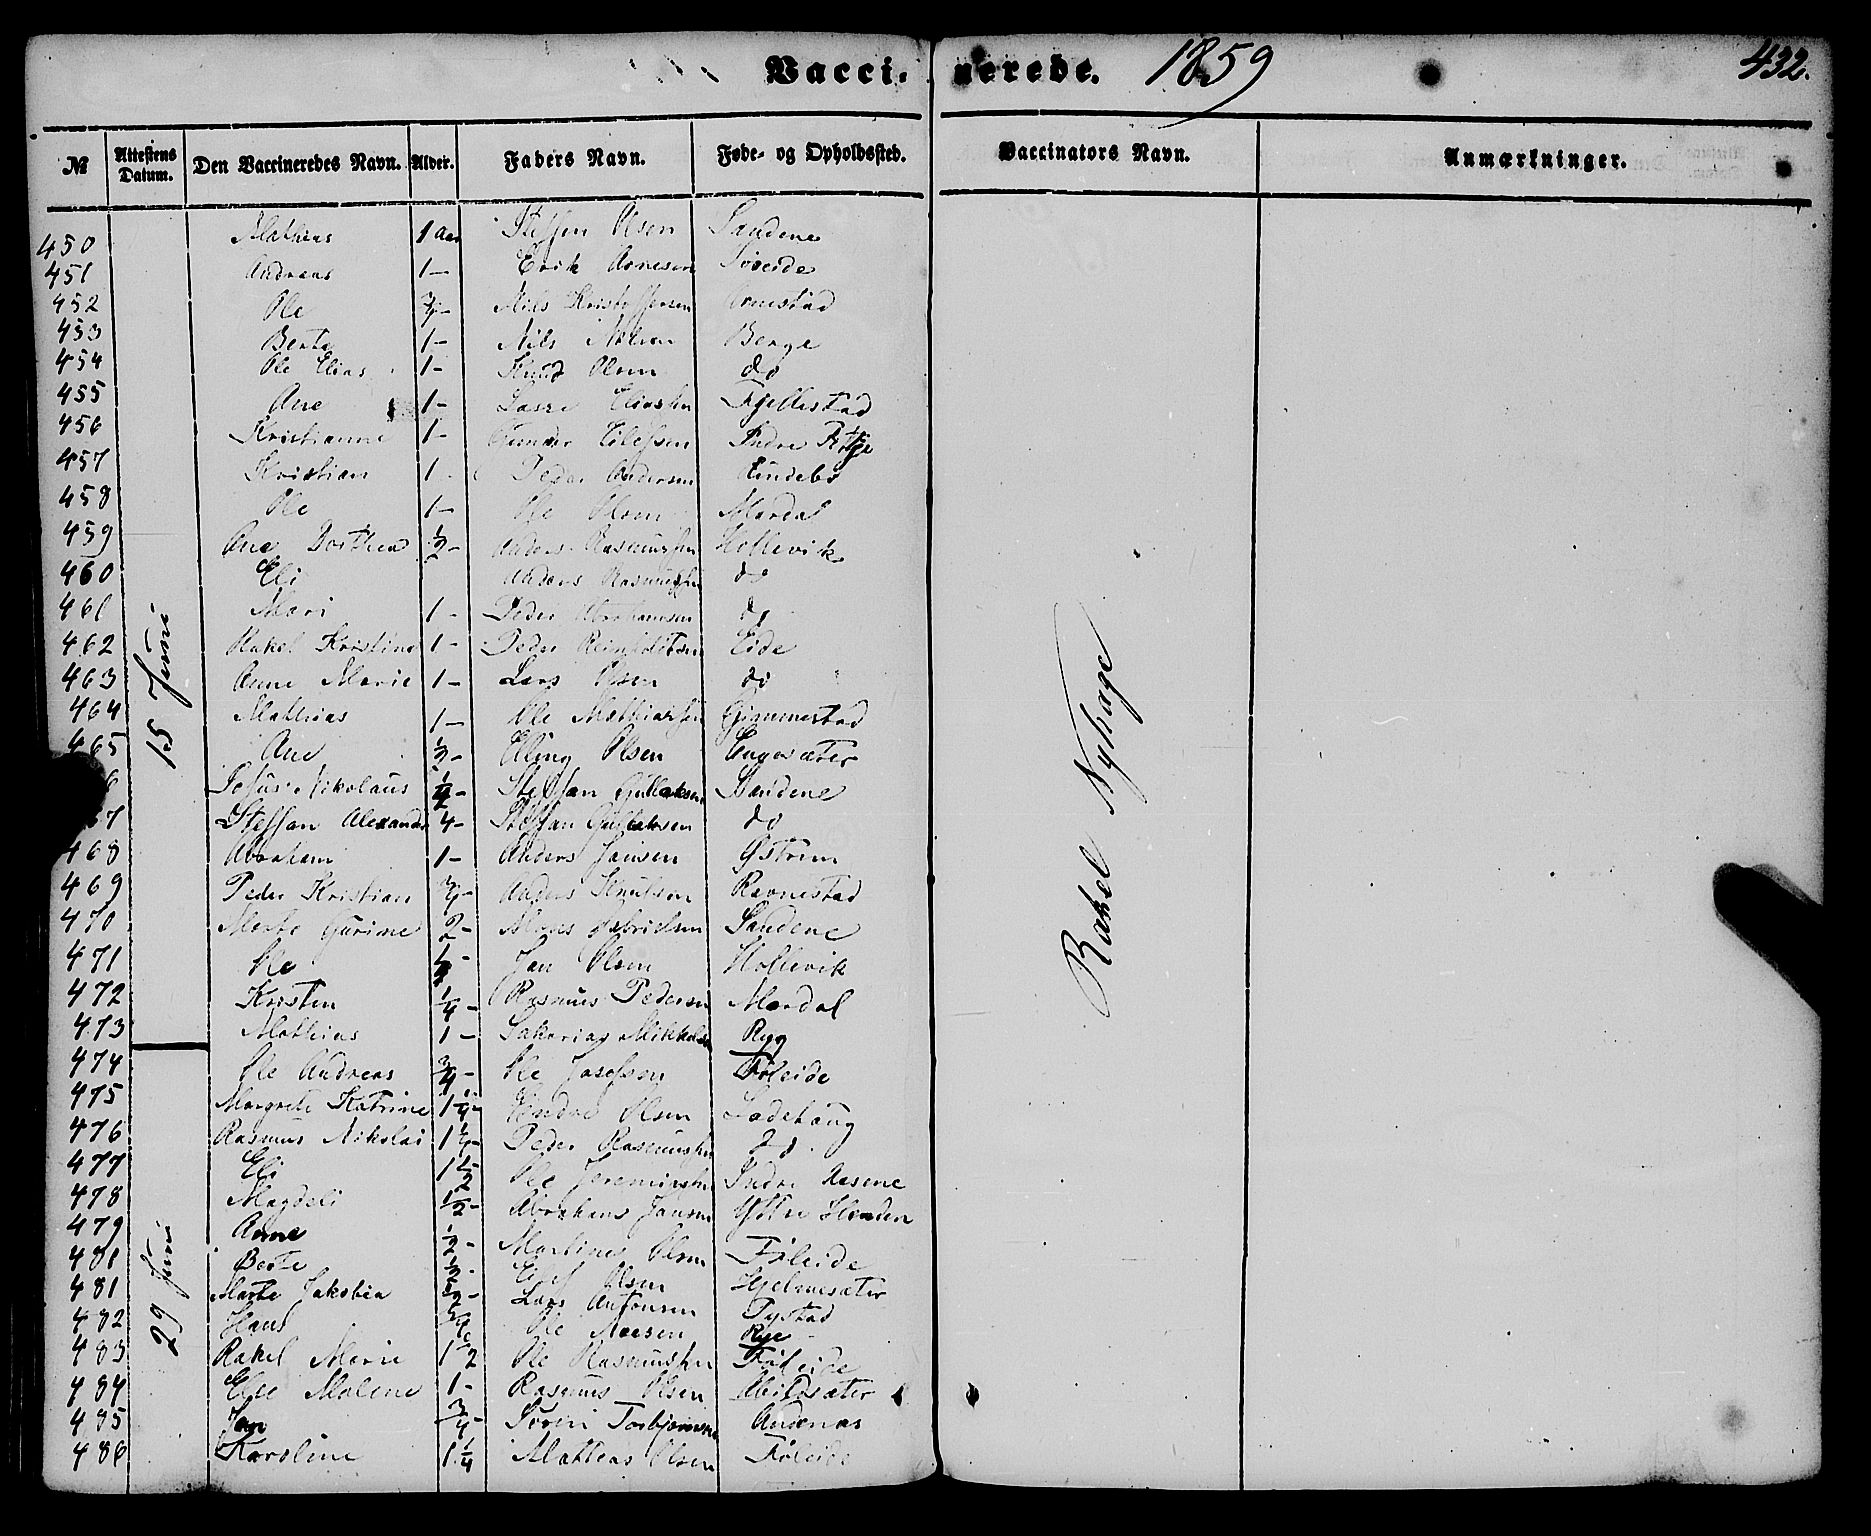 Vaccinerede. 1859 432.
№ Attestens Datum. Den Vaccineredes Navn. Alder. Faders Navn. Føde- og Opholdssted. Vaccinators Navn. Anmærkninger.
15 Juni
29 Juni
Rakel Nyhage
450 Mathias 1 Aar Steffen Olsen Sandene
451 Andreas 1 - Erik Arnesen Søreide
452 Ole 3/4 - Nils Kristoffersen Arnestad
453 Berte 1 - Nils Nilsen Berge
454 Ole Elias 1 - Knud Olsen do
455 Ane 1 - Lasse Eliassen Fjellestad
456 Kristianne 1 - Gunder Indre Rygg
457 Kristian 1 - Peder Andersen Eindebø
458 Ole 1 - Ole Olsen Mardal
459 Ane Dorthea 1/2 - Anders Rasmussen Hollevik
460 Eli Anders Rasmussen do
461 Mari 1 - Peder Abrahamsen do
462 Rakel Kristine 1 - Peder Reinholdtsen Eide
463 Anne Marie 1 - Lars Olsen do
464 Mathias 1 - Ole Mathiassen Gjimmestad
465 Ane 1/2 - Elling Olsen Engesæter
Nikolaus 1/2 - Steffan Gullaksen Sandene
467 Steffan Alexander 4 - Steffan Gullaksen do
468 Abraham 1 - Anders Jansen Østrem
469 Peder Kristian 3/4 - Anders Knutsen Ravnestad
470 Marte Gurine 2 - Mons Gabrielsen Sandene
471 Ole 1/2 - Jan Olsen Hollevik
472 Kristen 1/4 - Rasmus Pedersen Mardal
473 Mathias 1 - Sakarias Mikkelsen Rygg
474 Ole Andreas 3/4 - Ole Josefsen Føleide
475 Margrete Katrine 1 1/4 - Endre Olsen Ladehaug
476 Rasmus Nikolai 1 1/4 - Peder Rasmussen do
477 Eli 1 1/2 Ole Jeremiassen Indre Aasene
478 Magdeli 1/2 - Abraham Jansen Ytre Henden
479 Anne 1/2 - Martines Olsen Føleide
481 Berte 1/2 - Olsen Hjelmesæter
481 Marte Jakobea - Lars Antonsen Tystad
482 Hans Ole Moesen Rye
483 Rakel Marie 1 1/2 Ole Rasmussen Føleide
484 Else Malene 1 - Rasmus Olsen Abildsæter
485 Jan 3/4 - Søren Torbjørnsen Andenæs
486 Karoline 1 1/4 Mathias Olsen Føleide